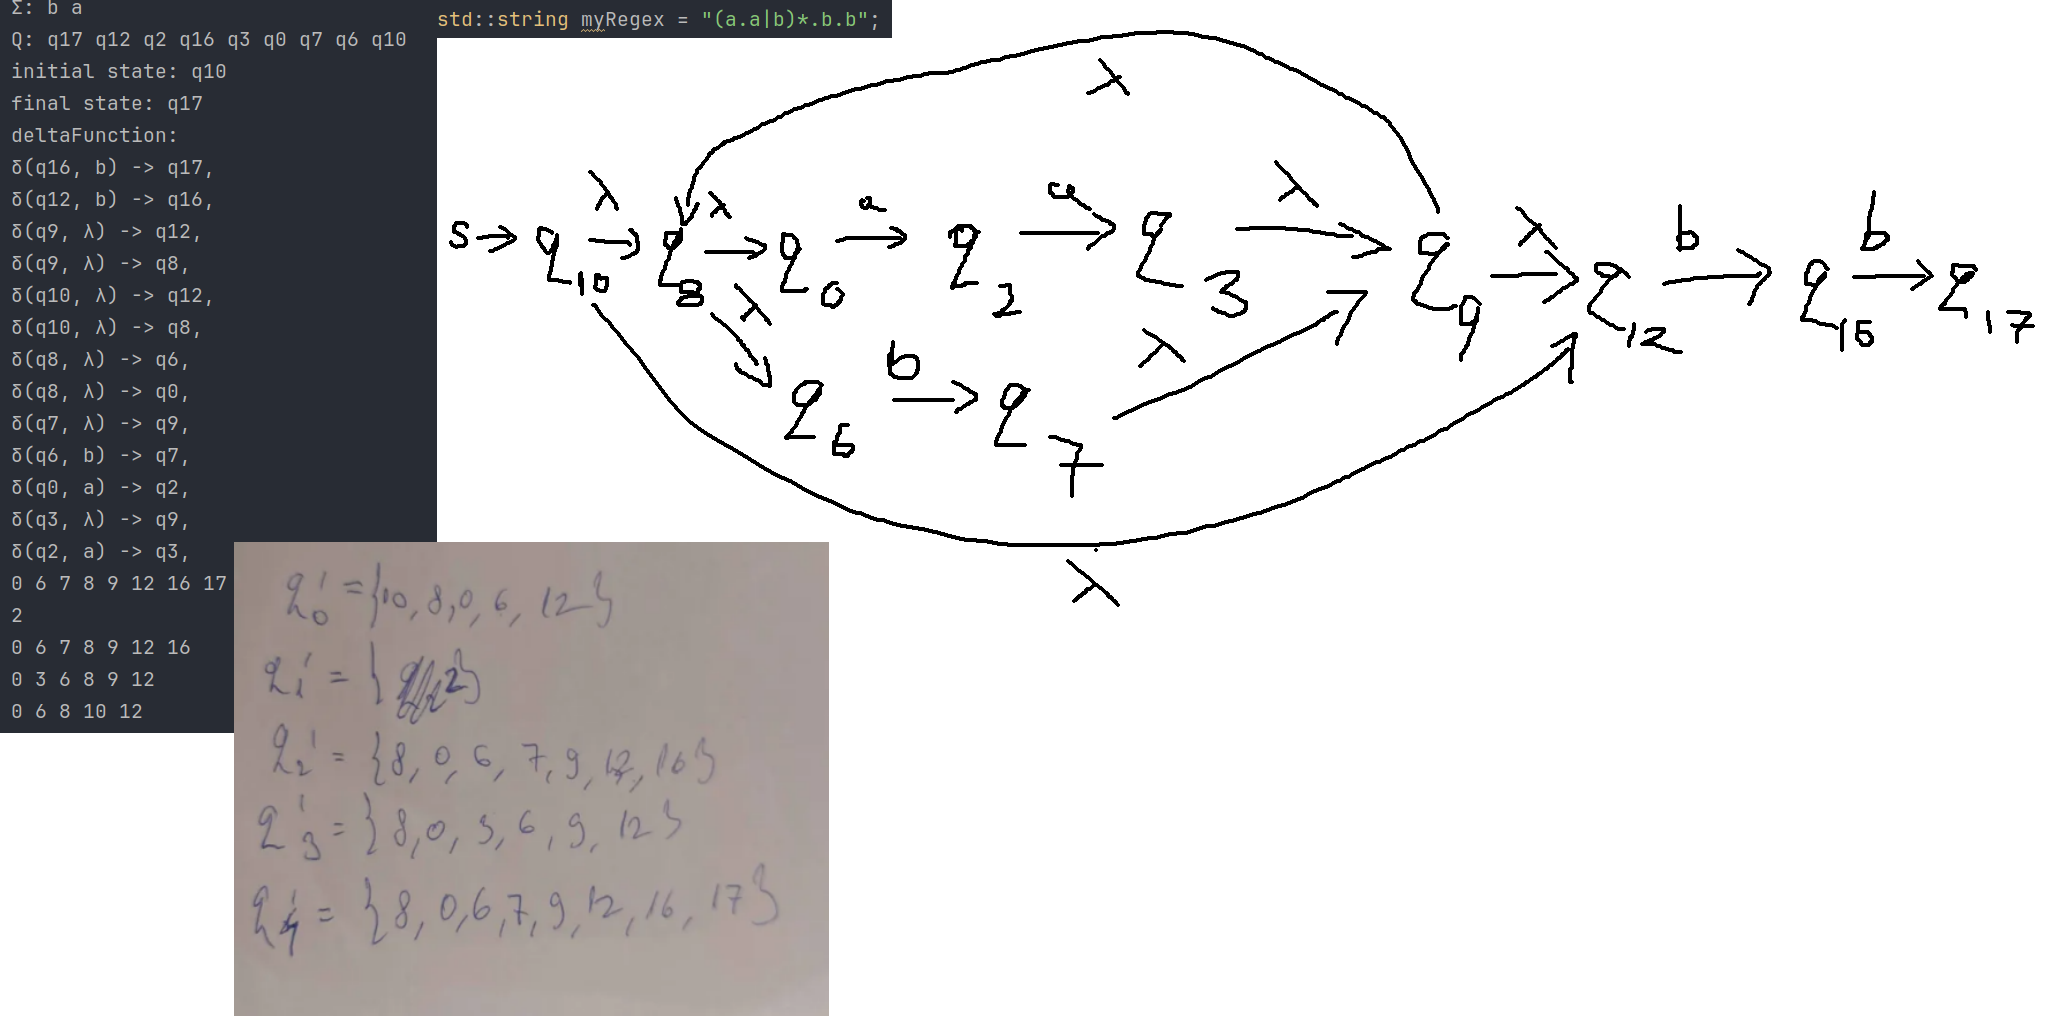 Σ: b a
Q: q17 q12 q2 q16 q3 q0 q7 q6 q10
initial state: q10
final state: q17
deltaFunction:
δ(q16, b) -> q17,
δ(q12, b) -> q16,
δ(q9, λ) -> q12,
δ(q9, λ) -> q8,
δ(q10, λ) -> q12,
δ(q10, λ) -> q8,
δ(q8, λ) -> q6,
δ(q8, λ) -> q0,
δ(q7, λ) -> q9,
δ(q6, b) -> q7,
δ(q0, a) -> q2,
δ(q3, λ) -> q9,
δ(q2, a) -> q3,
0 6 7 8 9 12 16 17
2
0 6 7 8 9 12 16
0 3 6 8 9 12
0 6 8 10 12
std::string myRegex = "(a.a|b)*.b.b";
λ
S → q10 λ → q8 λ → q0 a → q2 a → q3 λ → q9 λ → q12 b → q16 b → q17
λ q6 b → q7 λ
λ
q'0 = {10, 8, 0, 6, 12}
q'1 = {2}
q'2 = {8, 0, 6, 7, 9, 12, 16}
q'3 = {8, 0, 3, 6, 9, 12}
q'4 = {8, 0, 6, 7, 9, 12, 16, 17}